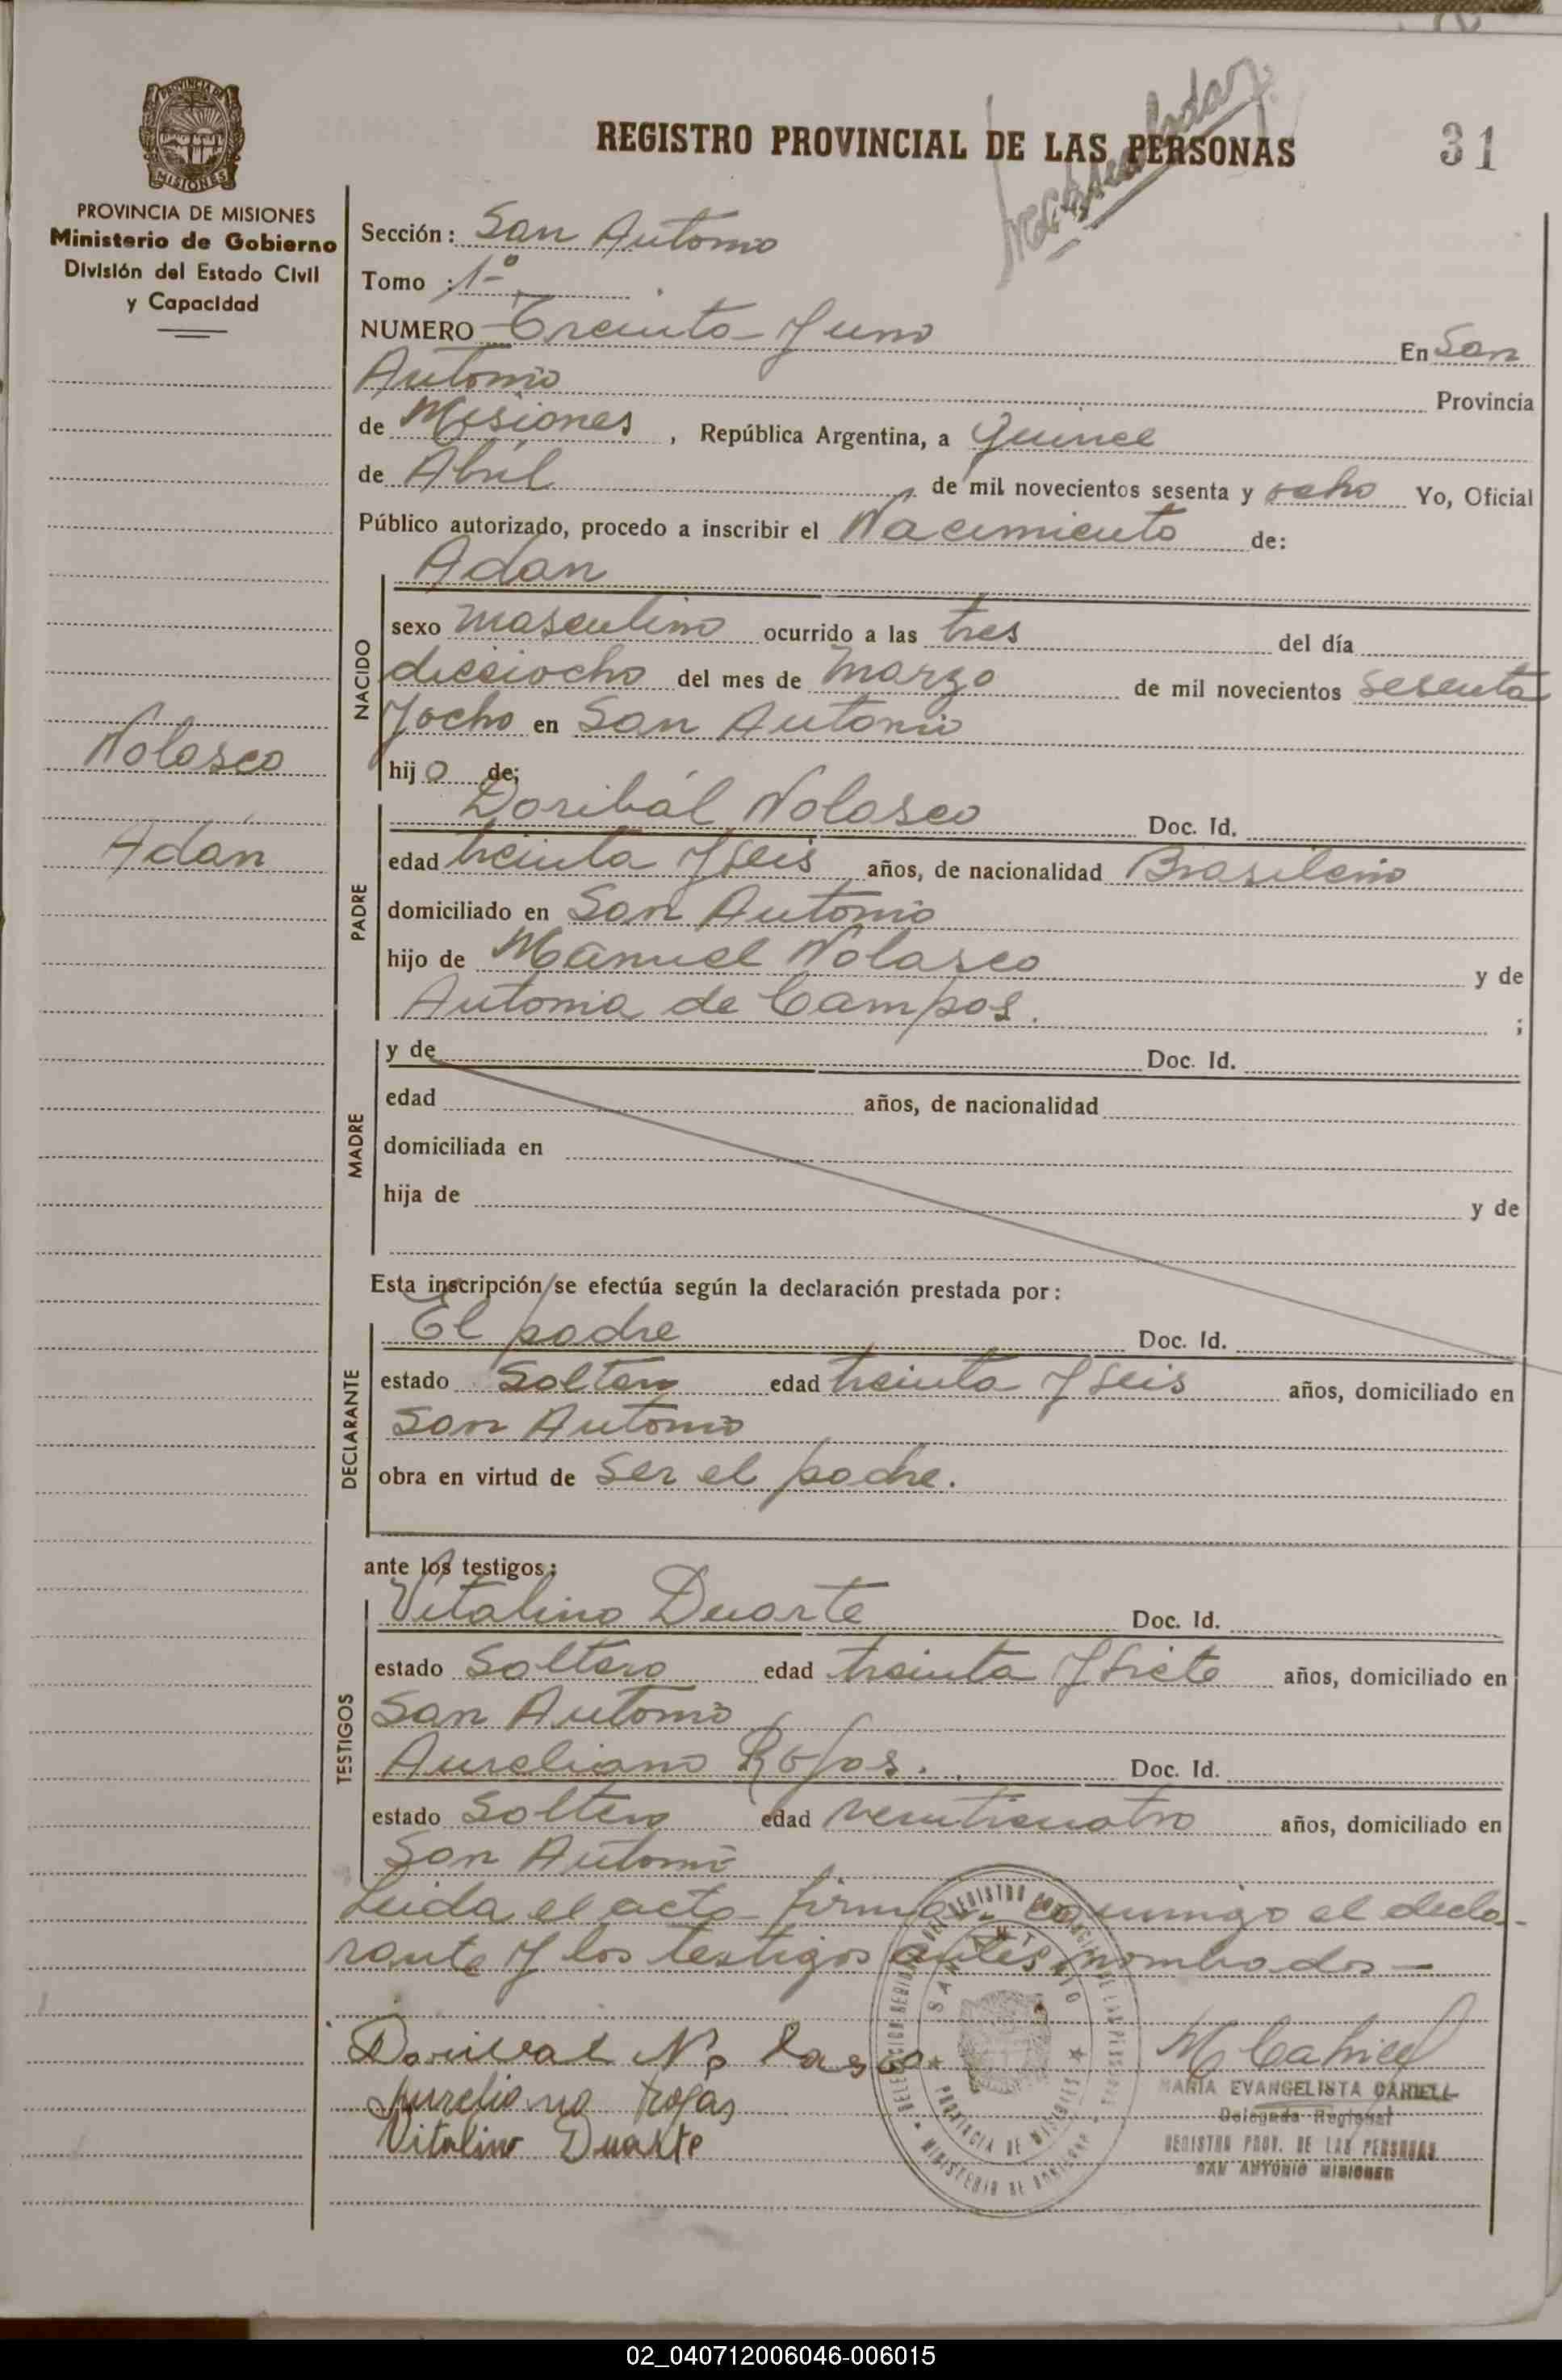 REGISTRO PROVINCIAL DE LAS PERSONAS
31
PROVINCIA DE MISIONES
PROVINCIA DE MISIONES
Ministerio de Gobierno
División del Estado Civil
y Capacidad
Nolasco
Adán
Sección: San Antonio
Tomo : 1º
NUMERO Treinta y uno
En San
Antonio Provincia
de Misiones, República Argentina, a Quince
de Abril de mil novecientos sesenta y ocho Yo, Oficial
Público autorizado, procedo a inscribir el Nacimiento de:
NACIDO
Adan
sexo masculino ocurrido a las tres del día
dieciocho del mes de marzo de mil novecientos sesenta
y ocho en San Antonio
hijo de:
PADRE
Doribál Nolasco Doc. Id.
edad treinta y seis años, de nacionalidad Brasileño
domiciliado en San Antonio
hijo de Manuel Nolasco y de
Antonia de Campos. ;
MADRE
y de Doc. Id.
edad años, de nacionalidad
domiciliada en
hija de y de
Esta inscripción se efectúa según la declaración prestada por:
DECLARANTE
El padre Doc. Id.
estado Soltero edad treinta y seis años, domiciliado en
San Antonio
obra en virtud de ser el padre.
ante los testigos:
TESTIGOS
Vitalino Duarte Doc. Id.
estado Soltero edad treinta y siete años, domiciliado en
San Antonio
Aureliano Rojas. Doc. Id.
estado Soltero edad veinticuatro años, domiciliado en
San Antonio
Leida el acta firman conmigo el decla-
rante y los testigos antes nombrados —
Dorival Nolasco
Aureliano Rojas
Vitalino Duarte
M Cahiell
MARIA EVANGELISTA CAHIELL
Delegada Regional
REGISTRO PROV. DE LAS PERSONAS
SAN ANTONIO MISIONES
SAN ANTONIO
PROVINCIA DE MISIONES
MINISTERIO DE GOBIERNO
02_040712006046-006015